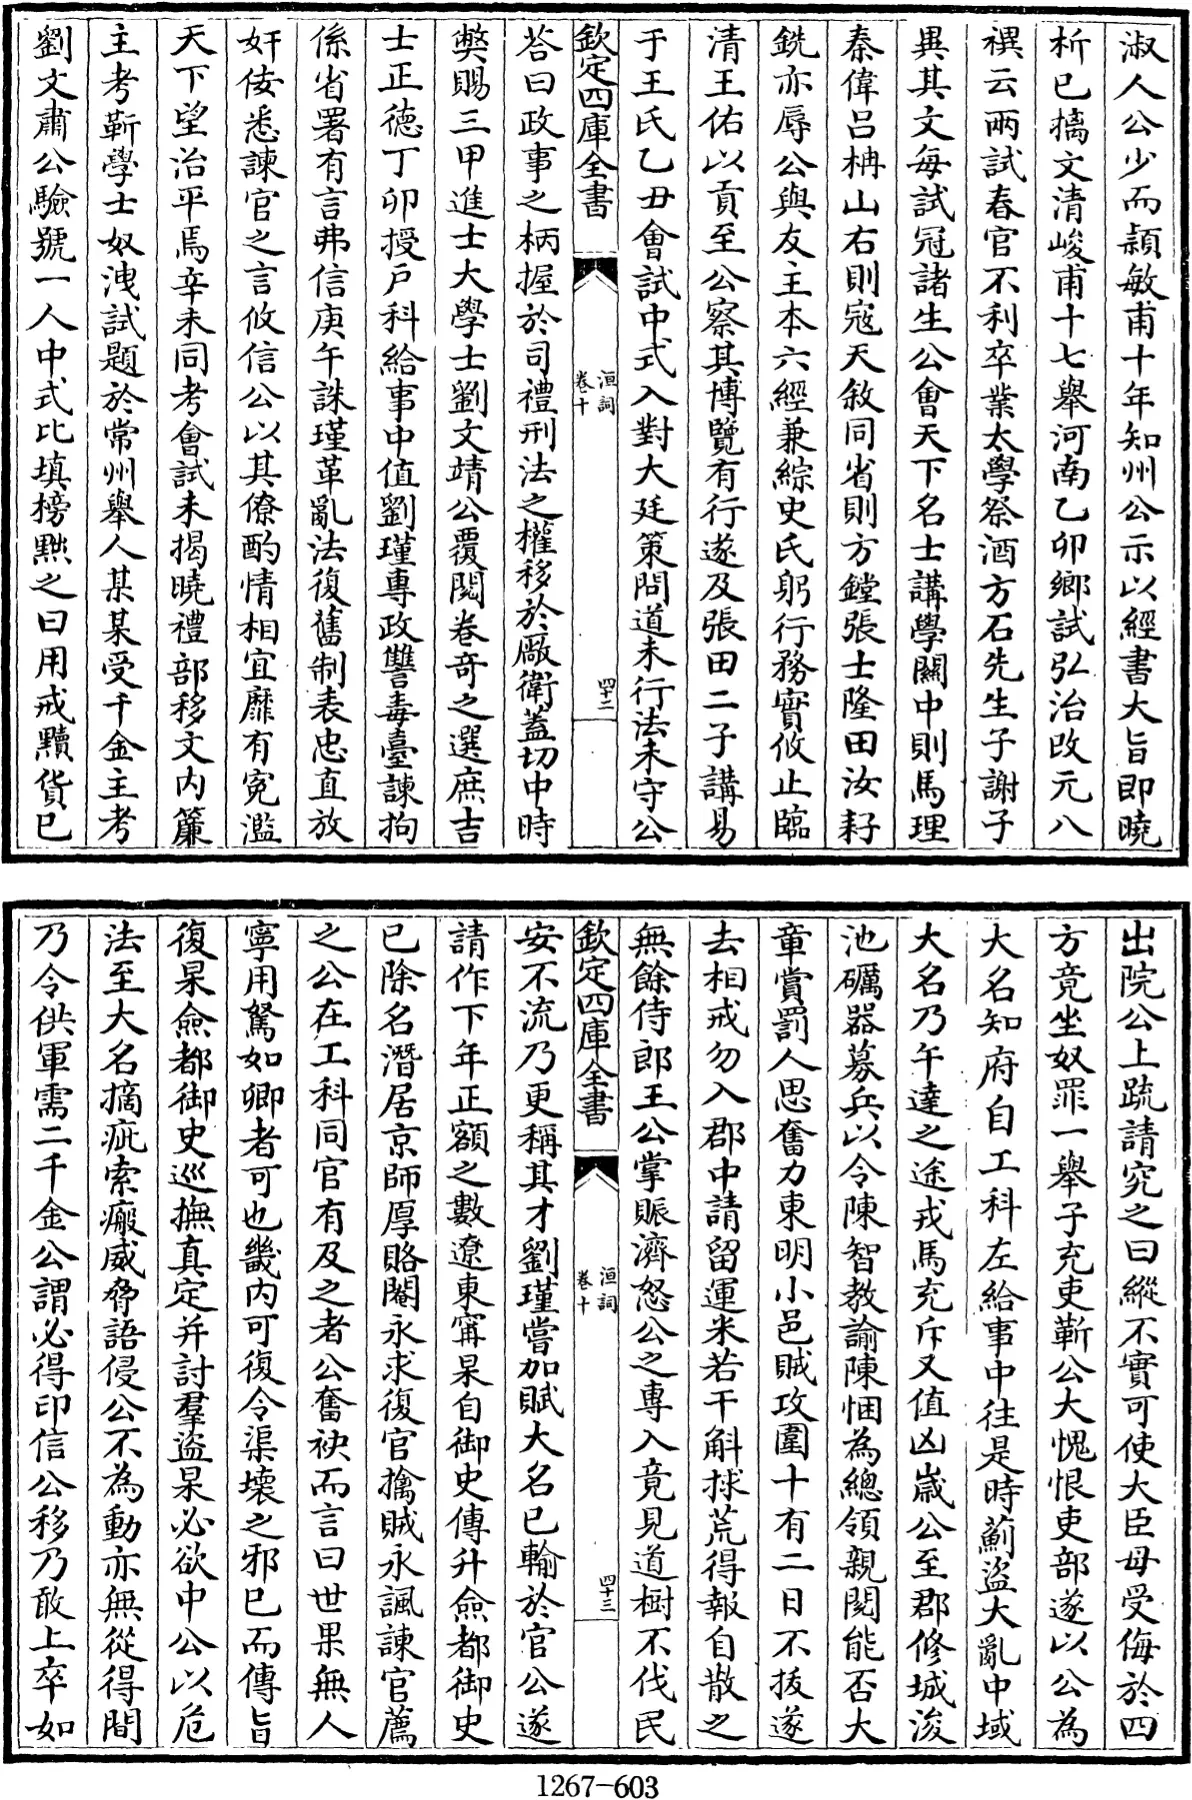 淑人公少而穎敏甫十年知州公示以經書大旨即曉
析已擒文清峻甫十七舉河南乙卯鄉試弘治改元八
禩云兩試春官不利卒業太學祭酒方石先生子謝子
異其文每試冠諸生公會天下名士講學關中則馬理
秦偉呂柟山右則冦天敘同省則方鏜張士隆田汝耔
銑亦辱公與友主本六經兼綜史氏躬行務實攸止臨
清王佑以貢至公察其博覽有行遂及張田二子講易
于王氏乙丑會試中式入對大廷策問道未行法未守公
欽定四庫全書
洹詞
卷十
四十二
荅曰政事之柄握於司禮刑法之權移於廠衛蓋切中時
獘賜三甲進士大學士劉文靖公覆閱卷奇之選庶吉
士正德丁卯授戶科給事中值劉瑾專政讐毒臺諫拘
係省署有言弗信庚午誅瑾革亂法復舊制表忠直放
奸佞悉諫官之言攸信公以其僚酌情相宜靡有寃濫
天下望治平焉辛未同考會試未揭曉禮部移文内簾
主考靳學士奴洩試題於常州舉人某某受千金主考
劉文肅公驗號一人中式比填榜黜之曰用戒黷貨已
出院公上疏請究之曰縱不實可使大臣毋受侮於四
方竟坐奴罪一舉子充吏靳公大愧恨吏部遂以公為
大名知府自工科左給事中往是時薊盜大亂中域
大名乃午達之途戎馬充斥又值凶嵗公至郡修城浚
池礪器募兵以令陳智教諭陳悃為總領親閱能否大
章賞罰人思奮力東明小邑賊攻圍十有二日不拔遂
去相戒勿入郡中請留運米若干斛捄荒得報自散之
無餘侍郎王公掌賑濟怒公之專入竟見道樹不伐民
欽定四庫全書
洹詞
卷十
四十三
安不流乃更稱其才劉瑾嘗加賦大名已輸於官公遂
請作下年正額之數遼東甯杲自御史傳升僉都御史
已除名潛居京師厚賂閹永求復官擒賊永諷諫官薦
之公在工科同官有及之者公奮袂而言曰世果無人
寧用駑如卿者可也畿内可復令渠壞之邪已而傳旨
復杲僉都御史巡撫真定并討羣盜杲必欲中公以危
法至大名摘疵索瘢威脅語侵公不為動亦無從得間
乃令供軍需二千金公謂必得印信公移乃敢上卒如
1267-603